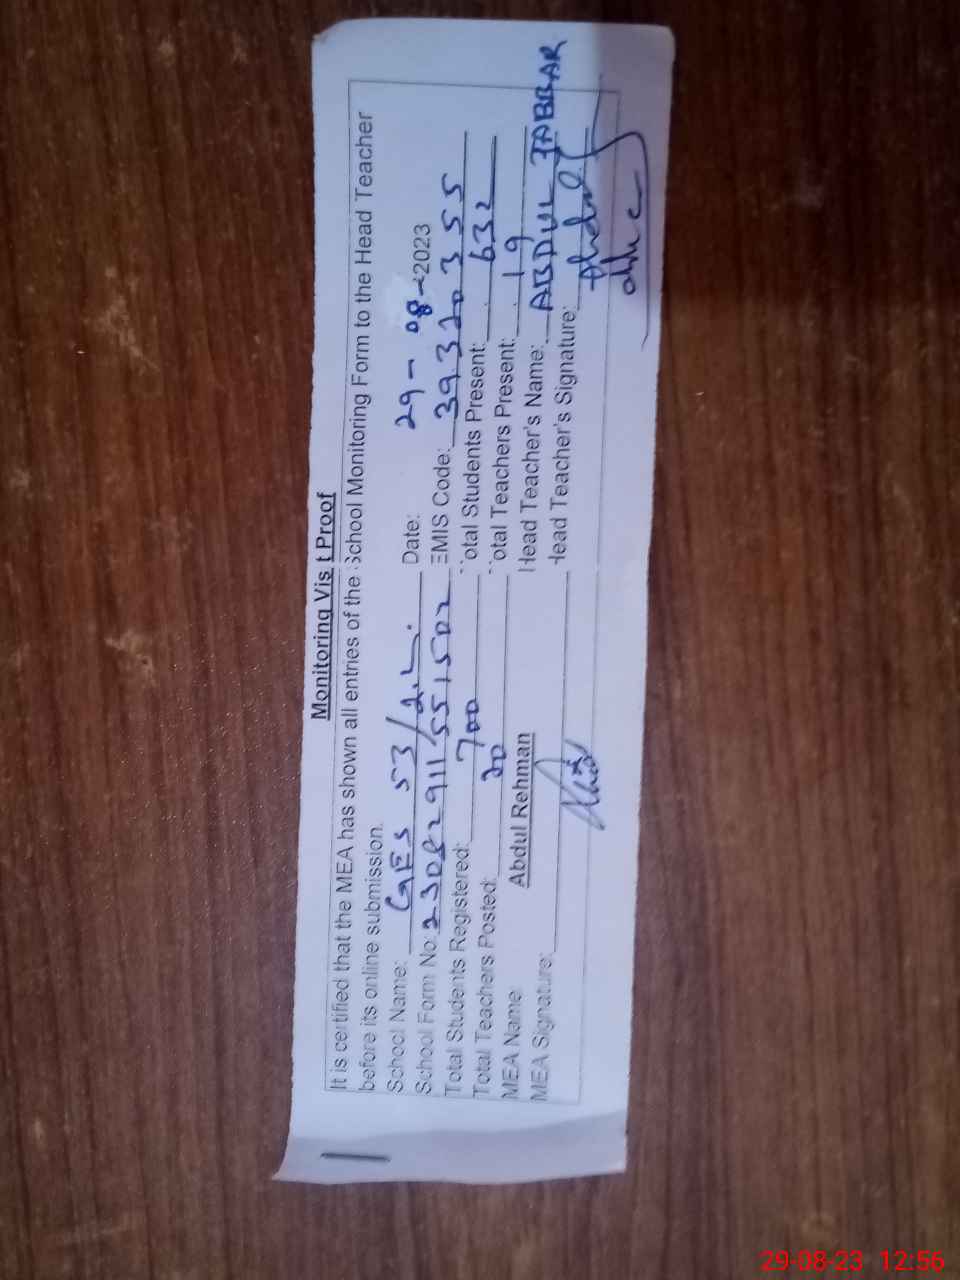 Monitoring Visit Proof
It is certified that the MEA has shown all entries of the School Monitoring Form to the Head Teacher
before its online submission.
School Name: GES 53/2.L. Date: 29-08-2023
School Form No: 23082911551502 EMIS Code: 39320355
Total Students Registered: 700 Total Students Present: 632
Total Teachers Posted: 20 Total Teachers Present: 19
MEA Name: Abdul Rehman Head Teacher's Name: ABDUL JABBAR
MEA Signature: Head Teacher's Signature:
29-08-23 12:56